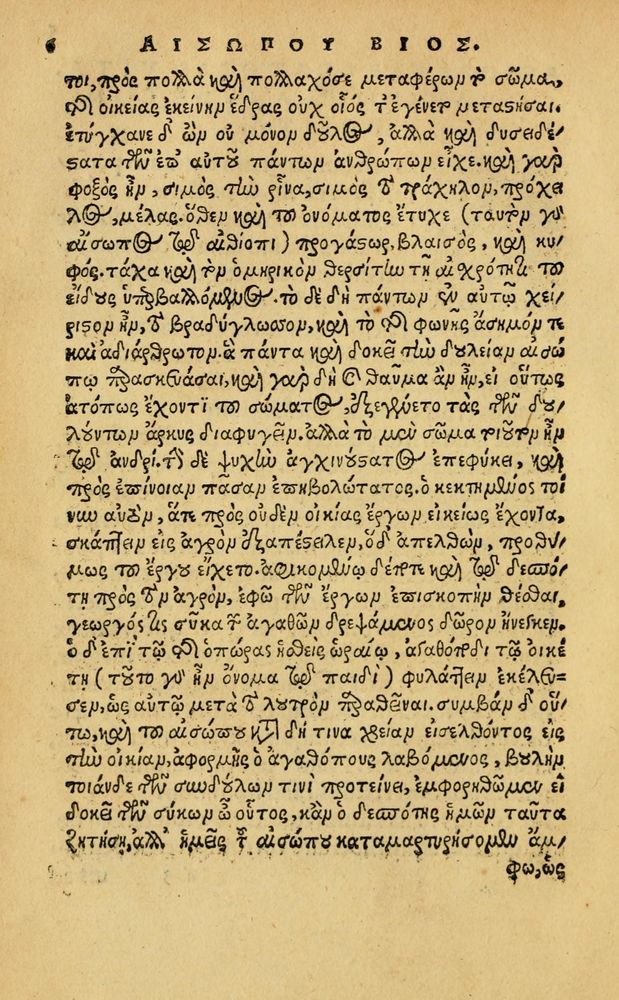 6 ΑΙΣΩΠΟΥ ΒΙΟΣ.
τοι, πρὸς πολλὰ καὶ πολλαχόσε μεταφέρων τὸ σῶμα,
τῆς οἰκείας ἐκείνην ἕδρας οὐχ οἷός τ' ἐγένετο μεταστῆσαι.
ἐτύγχανε δ' ὢν οὐ μόνον δοῦλος, ἀλλὰ καὶ δυσειδέ/
στατα τῶν ἐπ' αὐτοῦ πάντων ἀνθρώπων εἶχε. καὶ γὰρ
φοξὸς ἦν, σιμὸς τὴν ῥῖνα, σιμὸς τὸν τράχηλον, πρόχει
λος, μέλας. ὅθεν καὶ τοῦ ὀνόματος ἔτυχε (ταυτὸν γὰρ
αἴσωπος τῷ αἰθίοπι) προγάστωρ, βλαισὸς, καὶ κυ/
φός. τάχα καὶ τὸν ὁμηρικὸν θερσίτην τῇ αἰσχρότητι τοῦ
εἴδους ὑπερβαλλόμενος. τὸ δὲ δὴ πάντων ἐν αὐτῷ χεί/
ριστον ἦν, τὸ βραδύγλωσσον, καὶ τὸ τῆς φωνῆς ἄσημόν τε
καὶ ἀδιάρθρωτον. ἃ πάντα καὶ δοκεῖ τὴν δουλείαν αἰσώ
πῳ παρασκευάσαι, καὶ γὰρ δὴ καὶ θαῦμα ἂν ἦν, εἰ οὕτως
ἀτόπως ἔχοντι τοῦ σώματος, ἐξεγένετο τὰς τῶν δου/
λούντων ἄρκυς διαφυγεῖν. ἀλλὰ τὸ μὲν σῶμα τοιοῦτον ἦν
τῷ ἀνδρί. τὴν δὲ ψυχὴν ἀγχινούστατος ἐπεφύκει, καὶ
πρὸς ἐπίνοιαν πᾶσαν ἐπηβολώτατος. ὁ κεκτημένος τοί
νυν αὐτὸν, ἅτε πρὸς οὐδὲν οἰκίας ἔργον εἰκείως ἔχοντα,
σκάπτειν εἰς ἀγρὸν ἐξαπέστειλεν, ὁ δ' ἀπελθὼν, προθύ/
μως τοῦ ἔργου εἴχετο. ἀφικομένῳ δέ ποτε καὶ τῷ δεσπό/
τῃ πρὸς τὸν ἀγρὸν, ἐφ' ᾧ τῶν ἔργων ἐπισκοπὴν θέσθαι,
γεωργός τις σῦκα τῶν ἀγαθῶν δρεψάμενος δῶρον ἤνεγκεν.
ὁ δ' ἐπὶ τῷ τῆς ὀπώρας ἡσθεὶς ὡραίῳ, ἀγαθόποδι τῷ οἰκέ/
τῃ (τοῦτο γὰρ ἦν ὄνομα τῷ παιδὶ) φυλάττειν ἐκέλευ=
σεν, ὡς αὐτῷ μετὰ τὸ λουτρὸν παραθεῖναι. συμβὰν δ' οὕ/
τω, καὶ τοῦ αἰσώπου κατὰ δή τινα χρείαν εἰσελθόντος εἰς
τὴν οἰκίαν, ἀφορμῆς ὁ ἀγαθόπους λαβόμενος, βουλὴν
τοιάνδε τῶν συνδούλων τινὶ προτείνει, ἐμφορηθῶμεν εἰ
δοκεῖ τῶν σύκων ὦ οὗτος, κἂν ὁ δεσπότης ἡμῶν ταῦτα
ζητήσῃ, ἀλλ' ἡμεῖς τοῦ αἰσώπου καταμαρτυρήσομεν ἄμ/
φω, ὡς